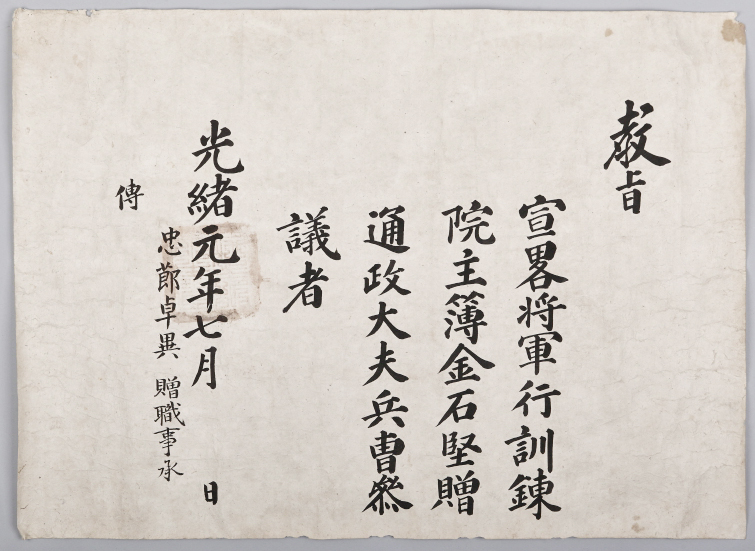 教旨
宣畧将軍行訓鍊
院主簿金石堅贈
通政大夫兵曹叅
議者
光緒元年七月 日
忠節卓異 贈職事承
傳